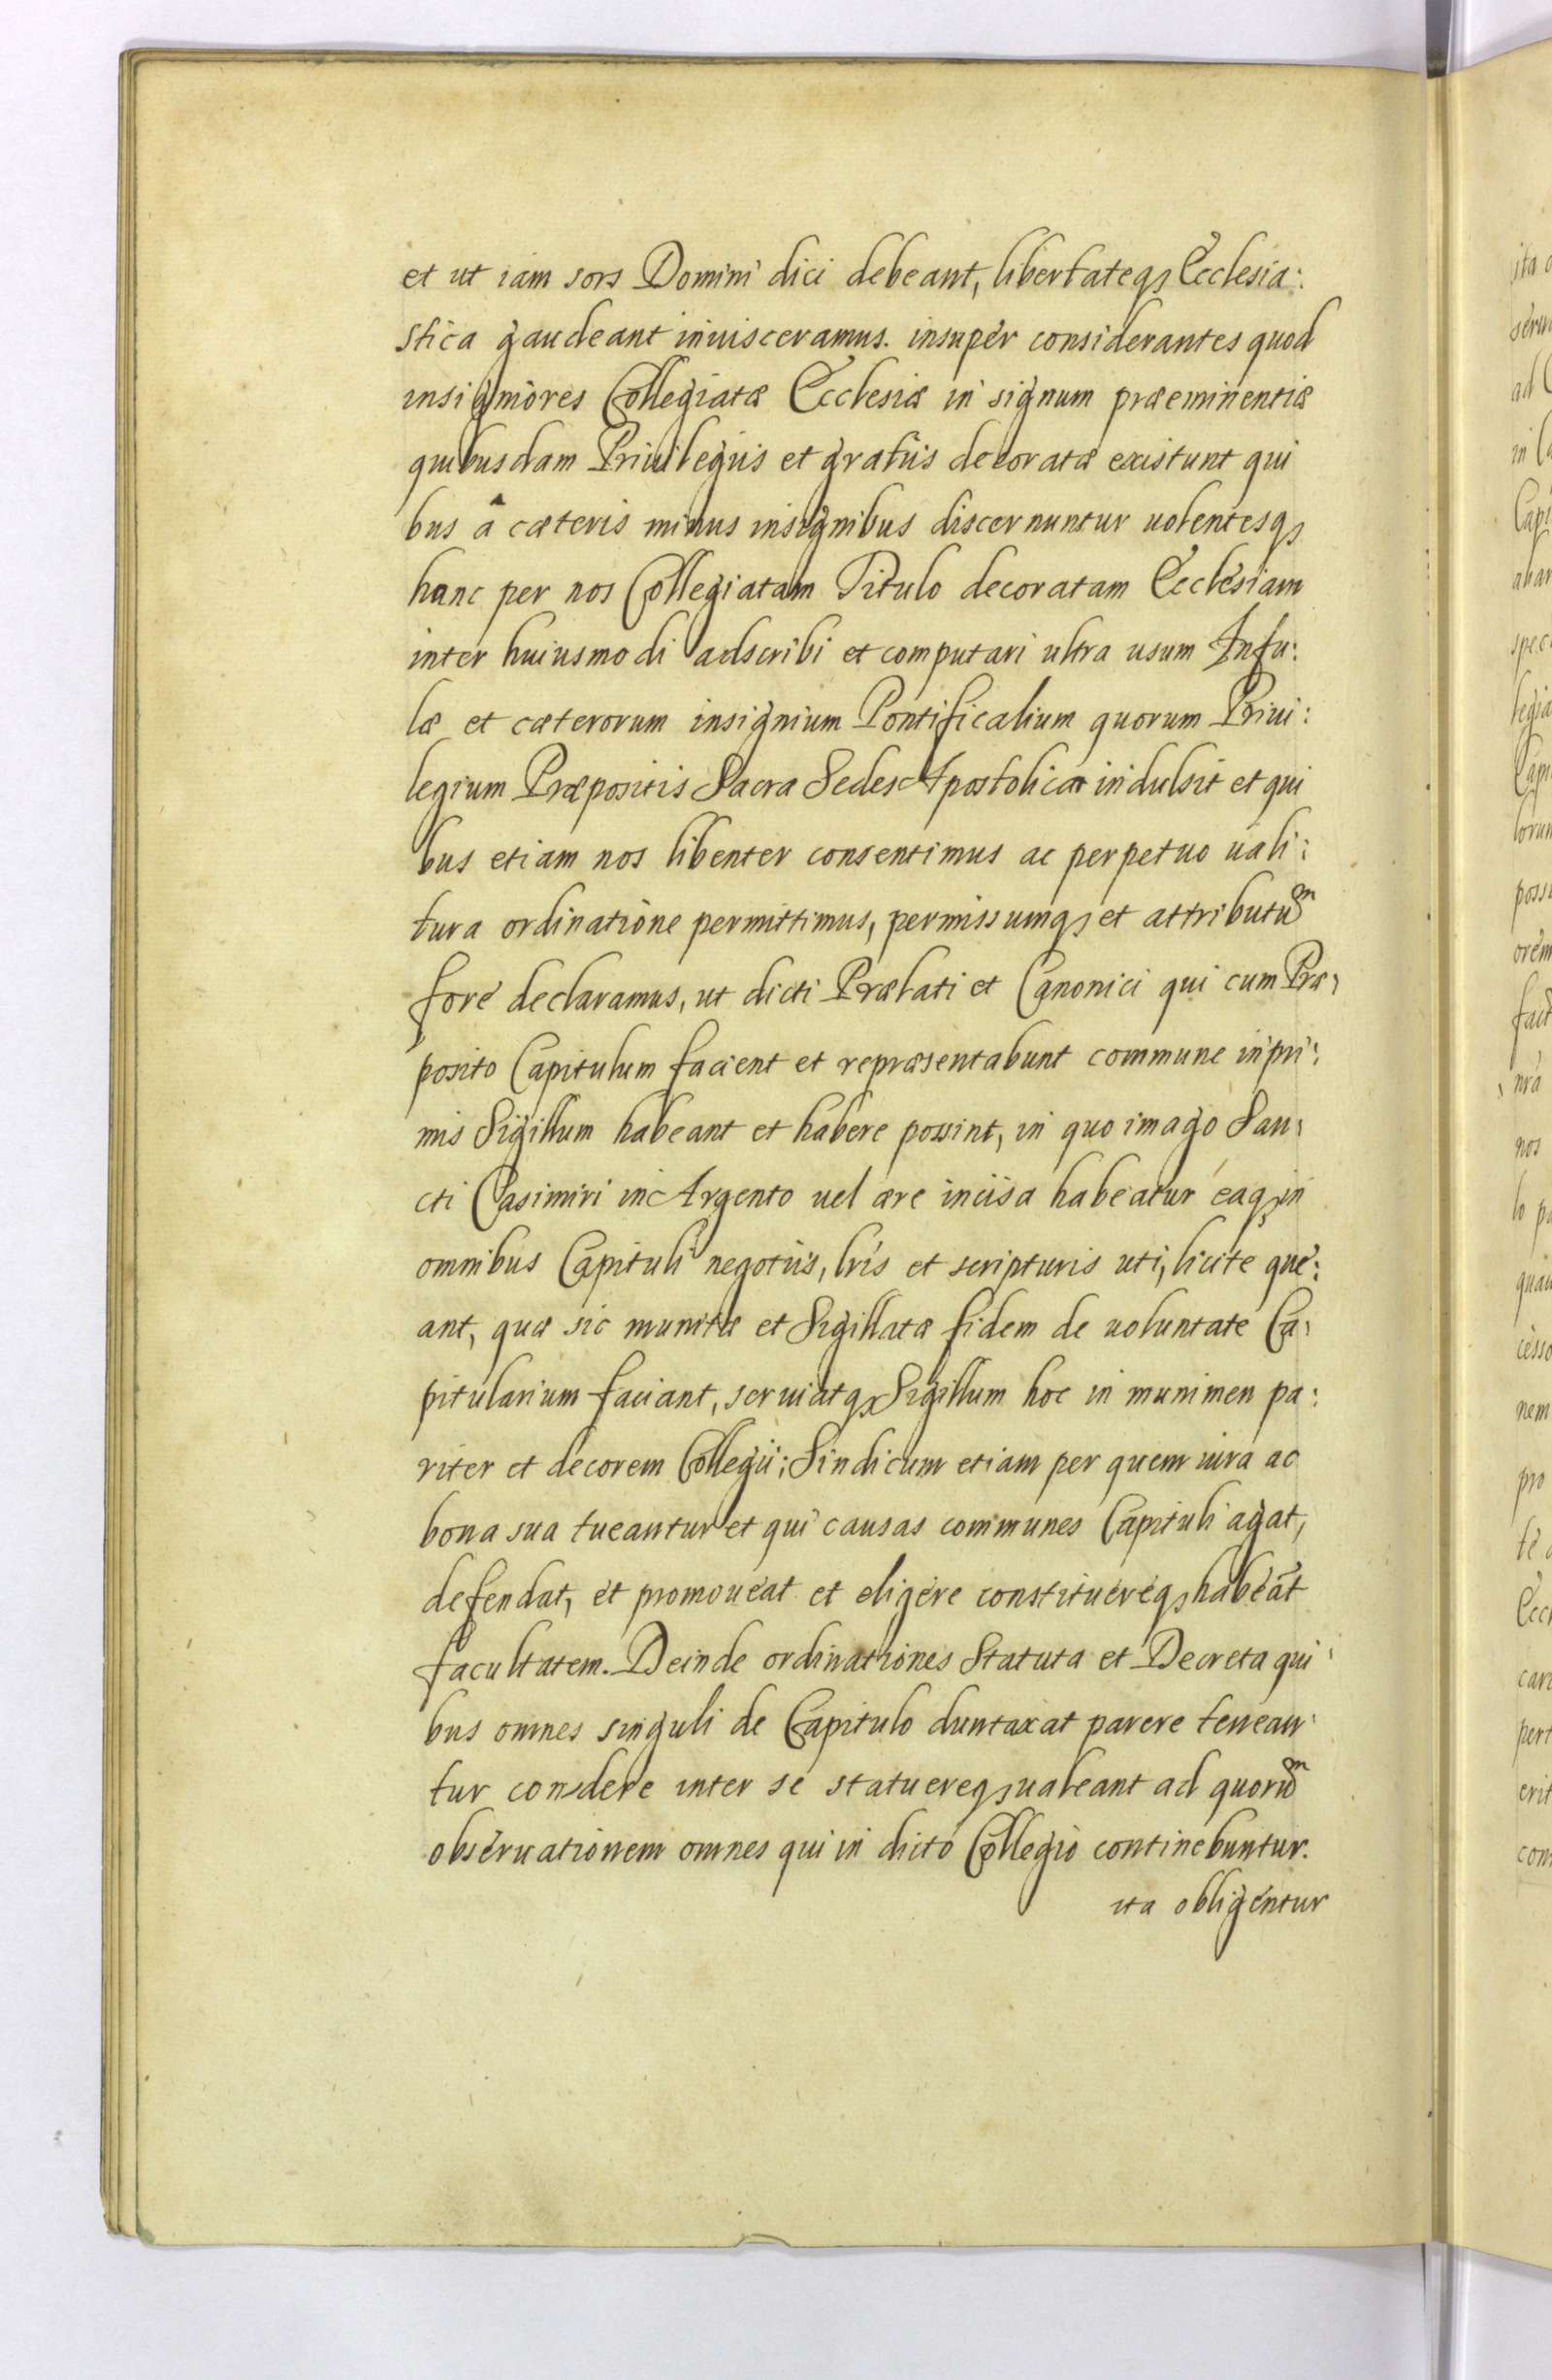 et ut iam sors Domini dici debeant, libertateqꝫ Ecclesia:
stica gaudeant inuisceramus. insuper considerantes quod
insigniores Collegiatæ Ecclesiæ in signum præeminentiæ
quibusdam Priuilegijs et gratijs decoratæ existunt qui
bus â cæteris minus insignibus discernuntur uolentesqꝫ
hanc per nos Collegiatam Titulo decoratam Ecclesiam
inter huiusmodi adscribi et computari ultra usum Infu:
læ et cæterorum insignium Pontificalium quorum Priui:
legium Præpositis Sacra Sedes Apostolica indulsit et qui
bus etiam nos libenter consentimus ac perpetuo uali:
tura ordinatione permittimus, permissumqꝫ et attributũ
fore declaramus, ut dicti Prælati et Canonici qui cum Præ,
posito Capitulum facient et repræsentabunt commune inpri:
mis Sigillum habeant et habere possint, in quo imago San,
cti Casimiri in Argento uel ære incisa habeatur eaqꝫ in
omnibus Capituli negotijs, lr̃is et scripturis uti, licite que:
ant, quæ sic munitæ et Sigillatæ fidem de uoluntate Ca,
pitularium faciant, seruiatqꝫ Sigillum hoc in munimen pa:
riter et decorem Collegij; Sindicum etiam per quem iura ac
bona sua tueantur et qui causas communes Capituli agat,
defendat, et promoueat et eligere constituereqꝫ habeãt
facultatem. Deinde ordinationes Statuta et Decreta qui
bus omnes singuli de Capitulo duntaxat parere tenean
tur condere inter se statuereqꝫ ualeant ad quorũ
obseruationem omnes qui in dicto Collegio continebuntur.
ita obligentur